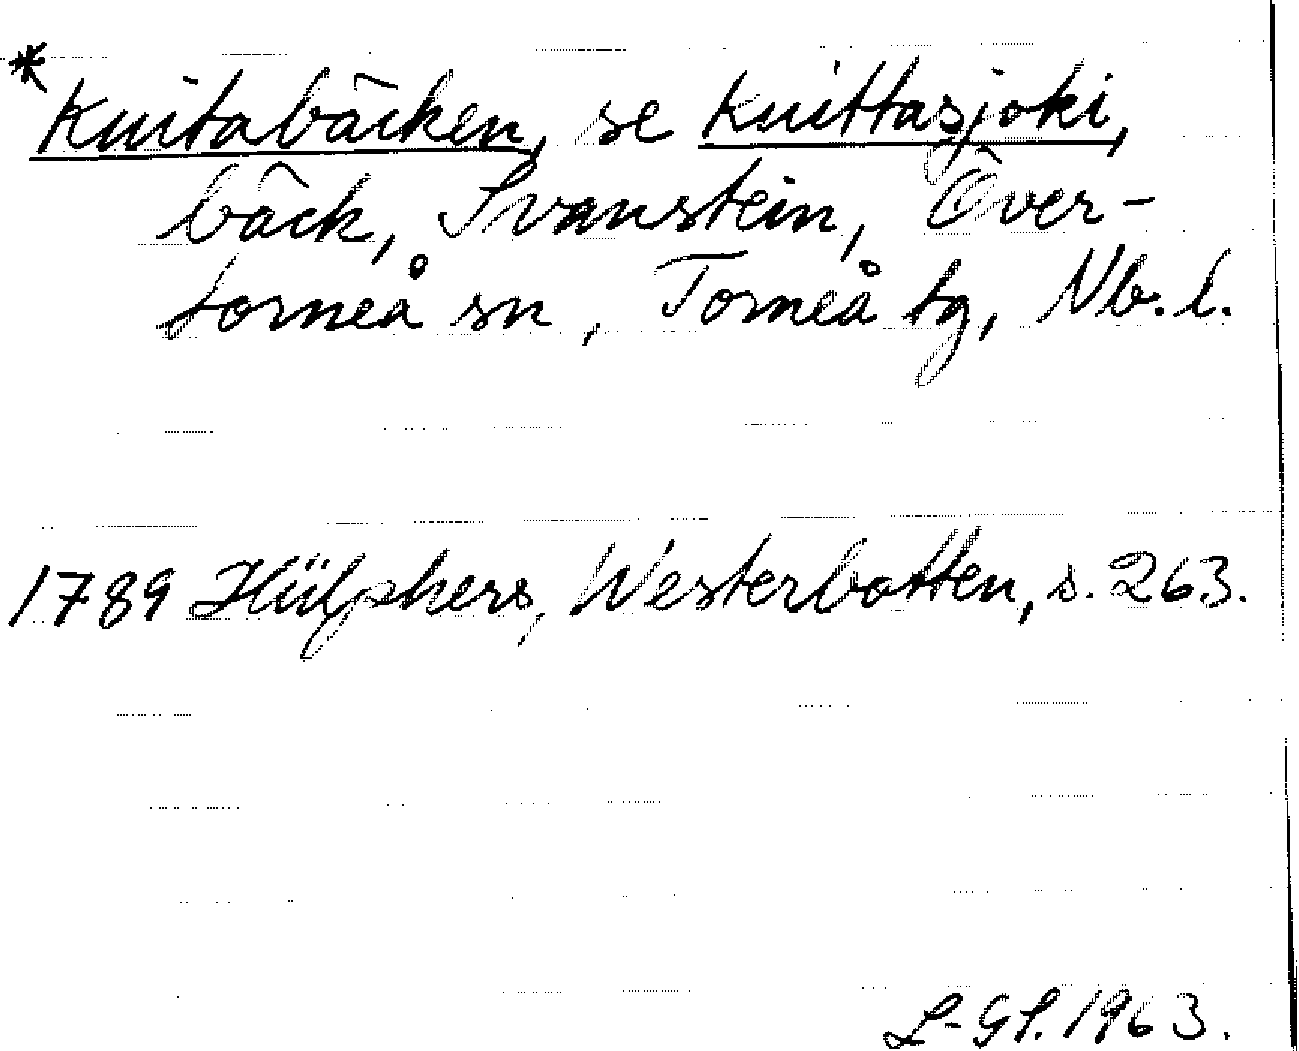 * Kuitabäcken, se Kuittasjoki,
bäck, Svanstein, Över-
torneå sn, Torneå tg, Nb. l.
1789 Hülphers, Westerbotten, s. 263.
L-GL. 1963.